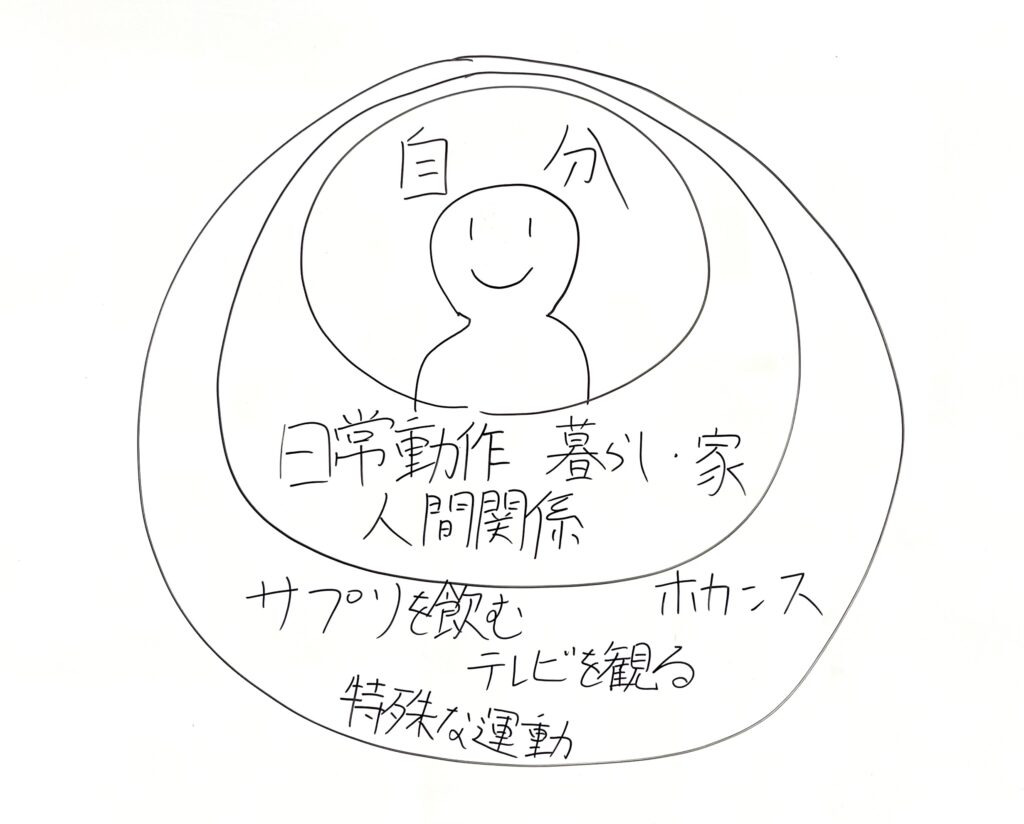 自分
日常動作 暮らし・家
人間関係
サプリを飲む ホカンス
テレビを観る
特殊な運動